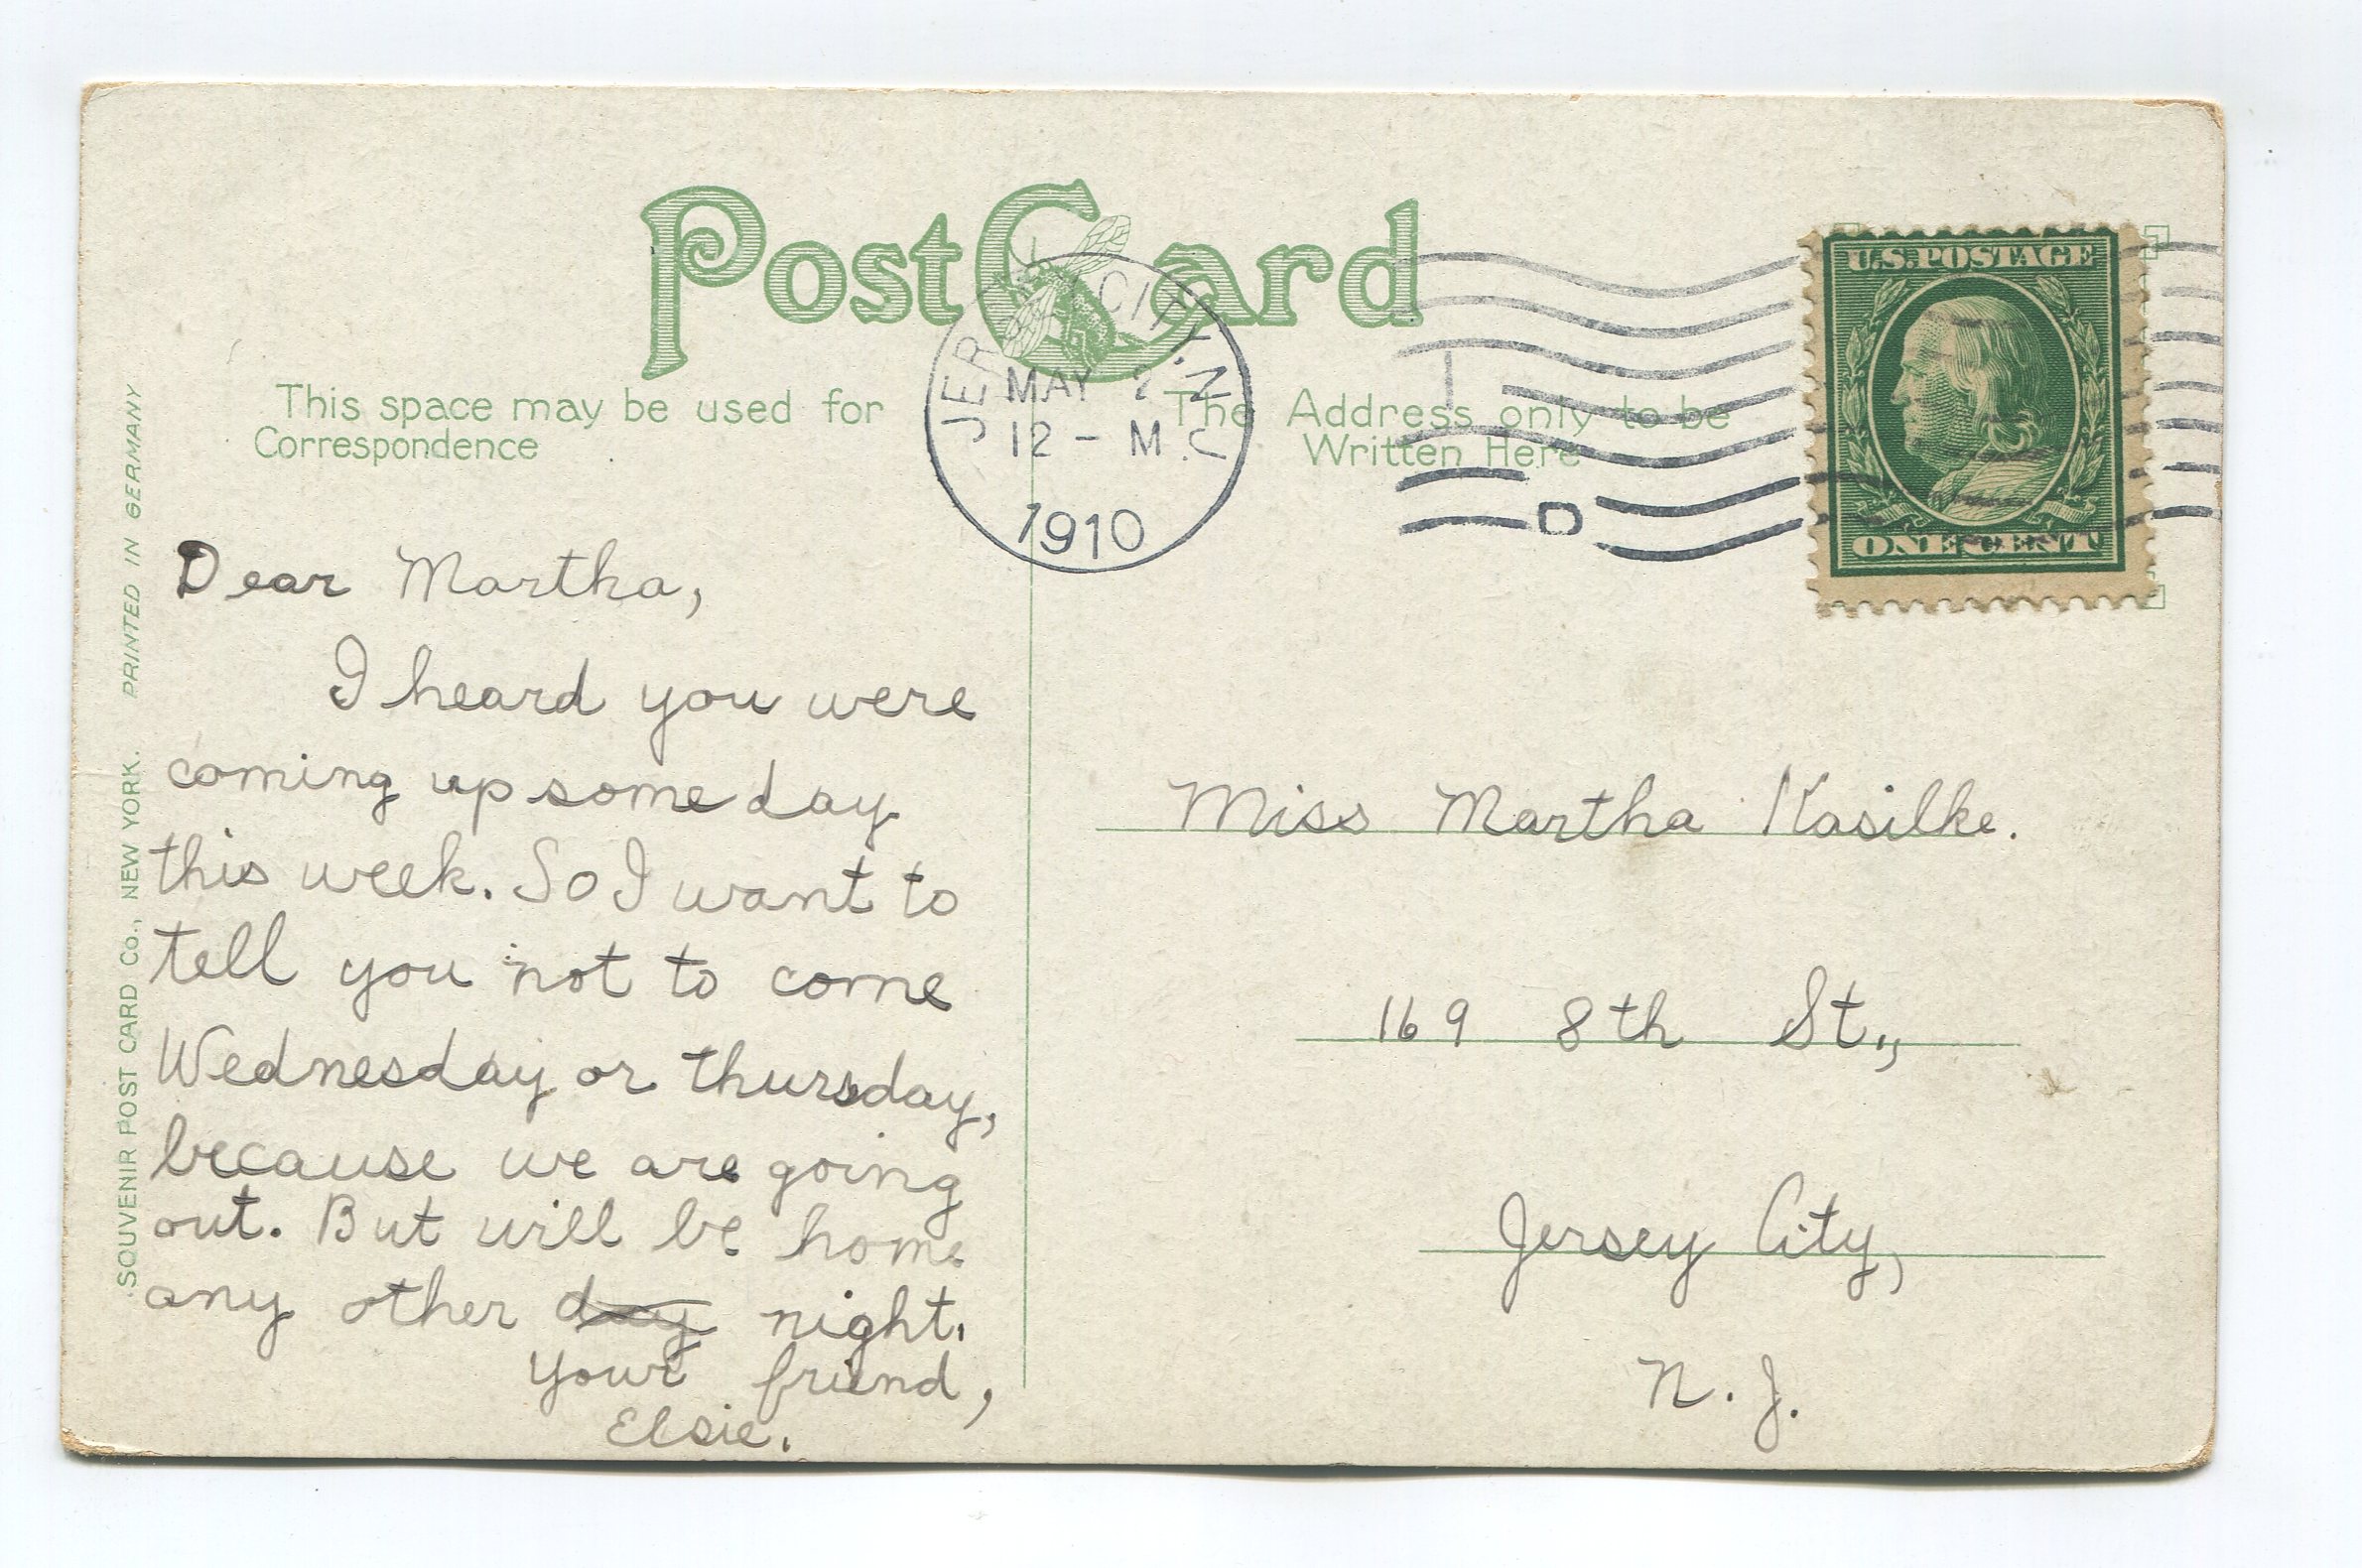 Post Card
This space may be used for
Correspondence
The Address only to be
Written Here
JERSEY CITY, N.J.
MAY 2
12 - M
1910
D
U.S. POSTAGE
ONE CENT
SOUVENIR POST CARD Co., NEW YORK. PRINTED IN GERMANY
Dear Martha,
I heard you were
coming up some day
this week. So I want to
tell you not to come
Wednesday or thursday,
because we are going
out. But will be home
any other day night.
Your friend,
Elsie.
Miss Martha Kasilke.
169 8th St.,
Jersey City,
N. J.